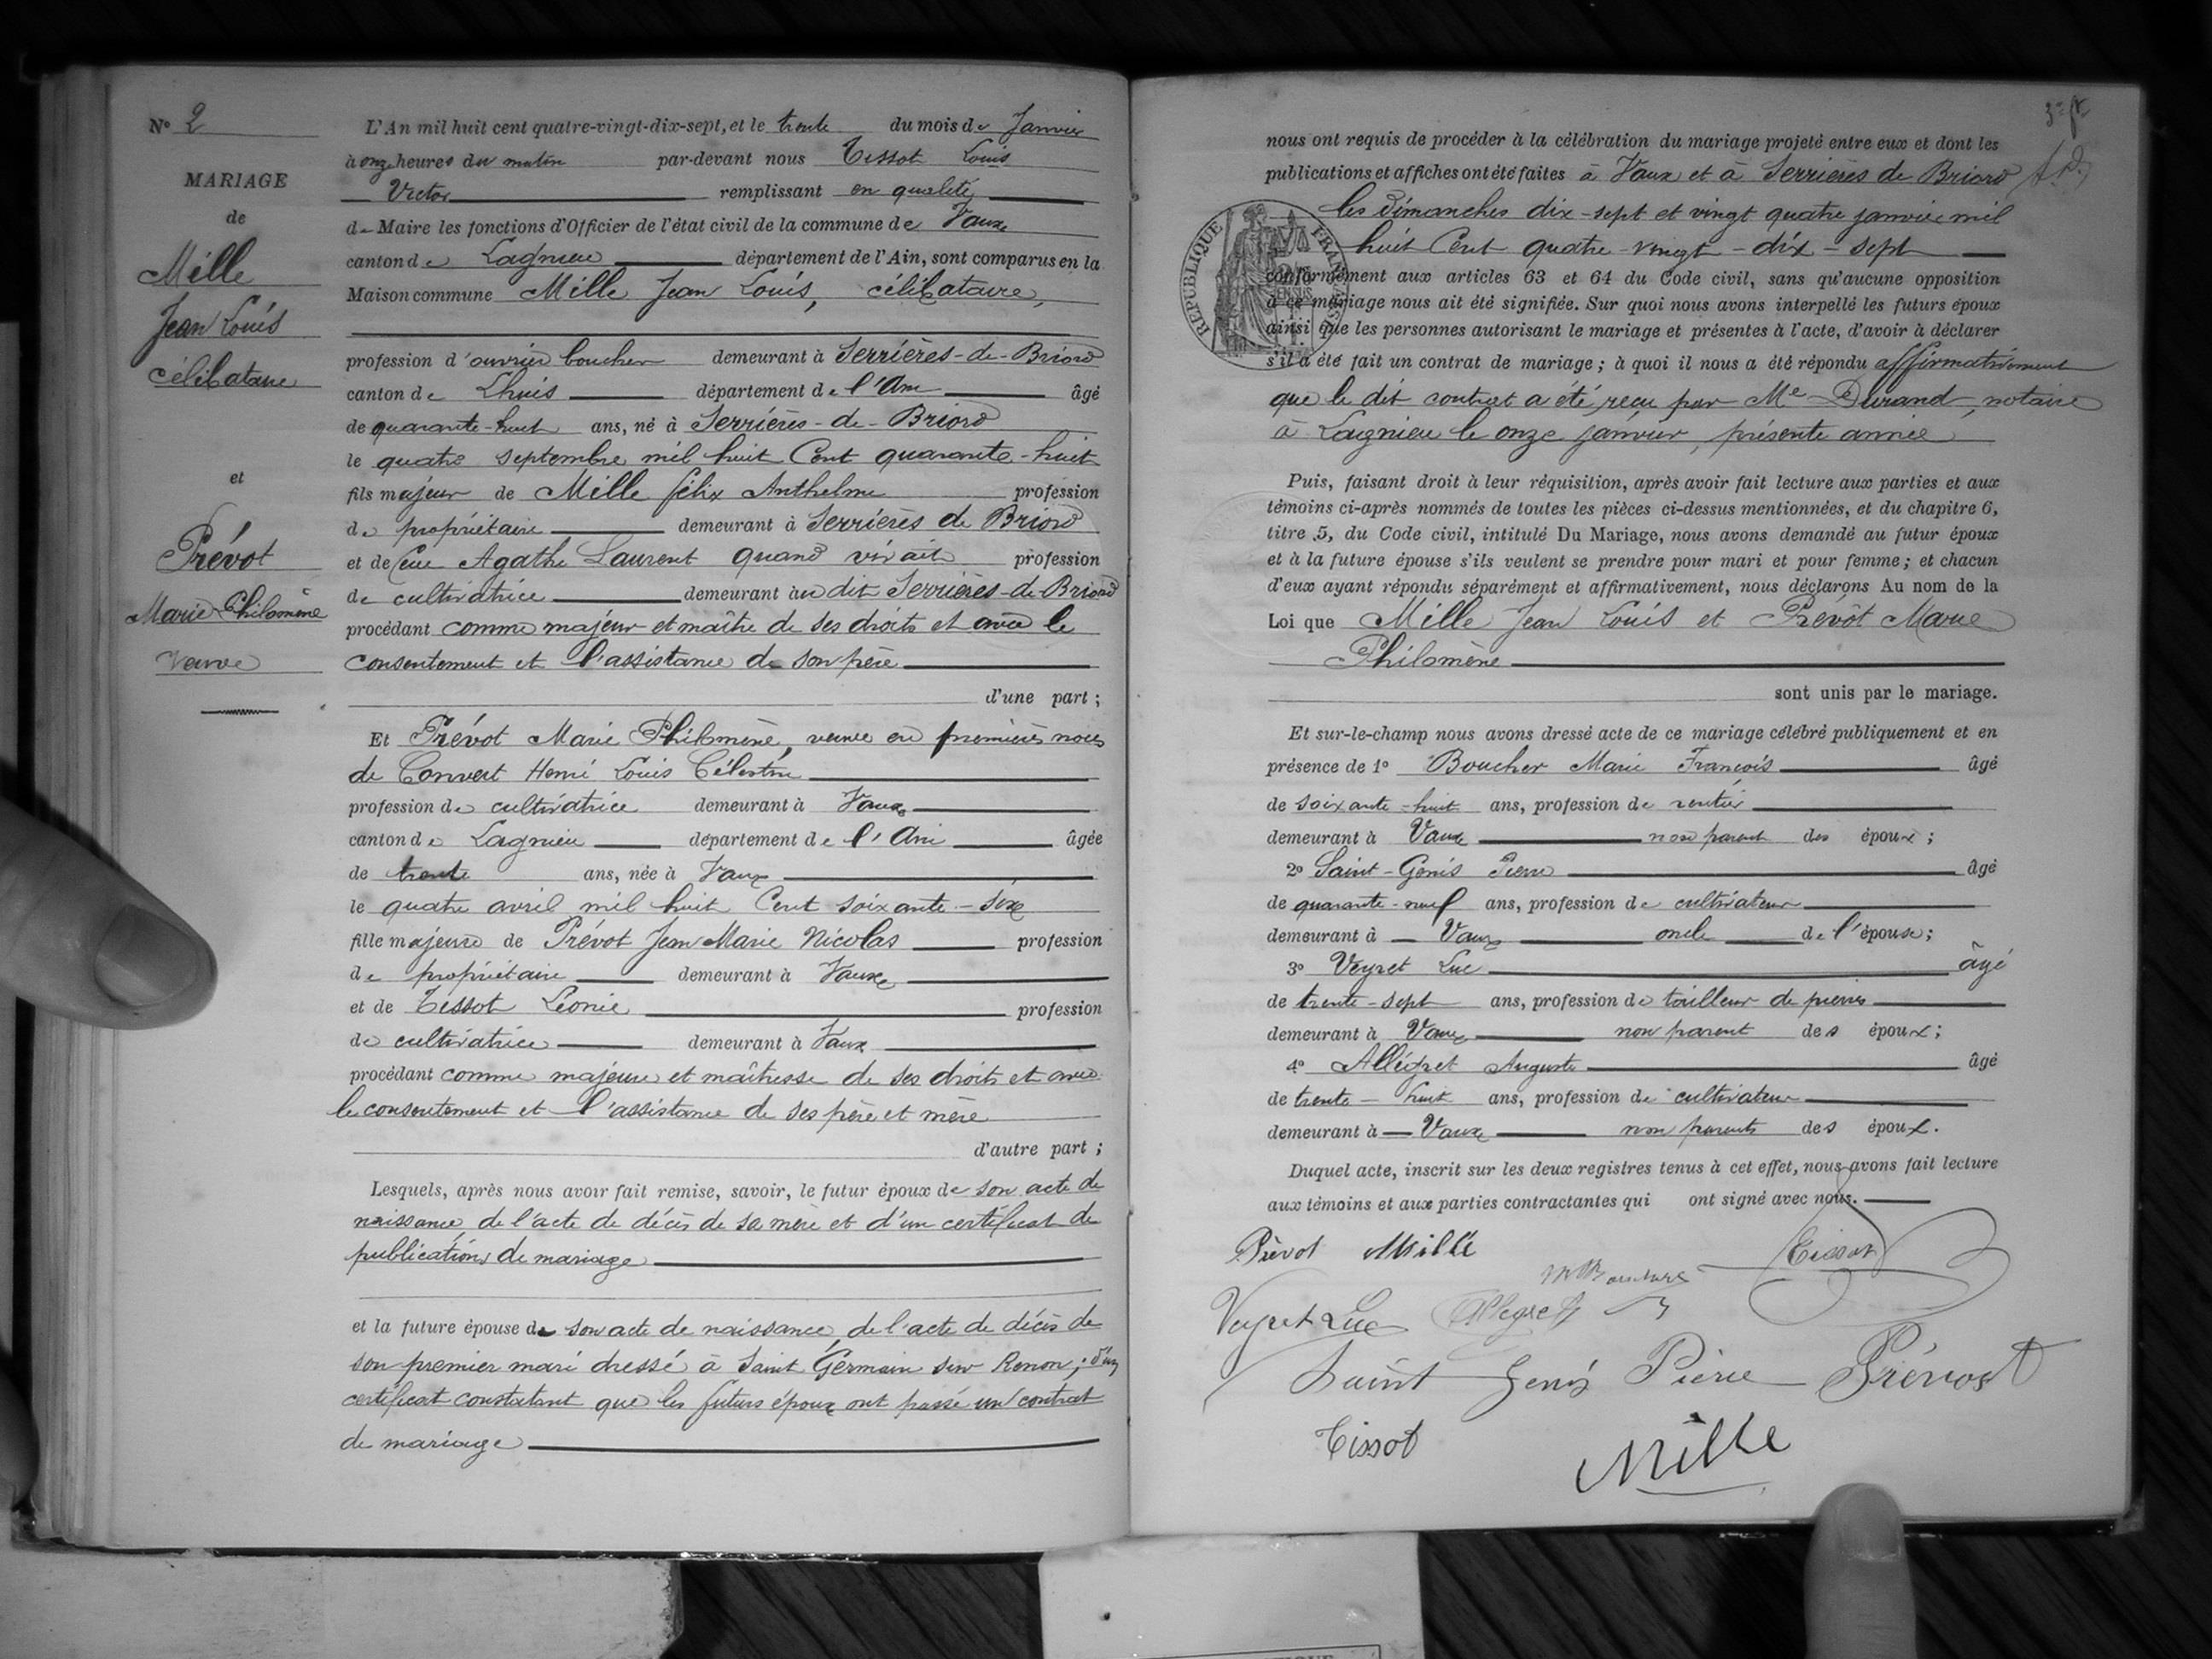 N° 2
MARIAGE
de
Mille
Jean Louis
célibataire
et
Prévot
Marie Philomène
veuve
L'An mil huit cent quatre-vingt-dix-sept, et le trente du mois de Janvier
à onze heures du matin par-devant nous Tissot Louis
Victor remplissant en qualité
de Maire les fonctions d'Officier de l'état civil de la commune de Vaux
canton de Lagnieu département de l'Ain, sont comparus en la
Maison commune Mille Jean Louis, célibataire,
profession d'ouvrier boucher demeurant à Serrières-de-Briord
canton de Lhuis département de l'Ain âgé
de quarante-huit ans, né à Serrières-de-Briord
le quatre septembre mil huit Cent quarante-huit
fils majeur de Mille félix Anthelme profession
de propriétaire demeurant à Serrières de Briord
et de feue Agathe Laurent quand vivait profession
de cultivatrice demeurant au dit Serrières-de-Briord
procédant comme majeur et maître de ses droits et avec le
consentement et l'assistance de son père
d'une part ;
Et Prévot Marie Philomène, veuve en premières noces
de Convert Henri Louis Célestin
profession de cultivatrice demeurant à Vaux
canton de Lagnieu département de l'Ain âgée
de trente ans, née à Vaux
le quatre avril mil huit Cent soixante-six
fille majeure de Prévot Jean Marie Nicolas profession
de propriétaire demeurant à Vaux
et de Tissot Léonie profession
de cultivatrice demeurant à Vaux
procédant comme majeure et maîtresse de ses droits et avec
le consentement et l'assistance de ses père et mère
d'autre part ;
Lesquels, après nous avoir fait remise, savoir, le futur époux de son acte de
naissance, de l'acte de décès de sa mère et d'un certificat de
publications de mariage
et la future épouse de son acte de naissance, de l'acte de décès de
son premier mari dressé à Saint Germain sur Renon ; d'un
certificat constatant que les futurs époux ont passé un contrat
de mariage
nous ont requis de procéder à la célébration du mariage projeté entre eux et dont les
publications et affiches ont été faites à Vaux et à Serrières de Briord
les dimanches dix-sept et vingt quatre janvier mil
huit Cent quatre-vingt-dix-sept
RÉPUBLIQUE FRANÇAISE
conformément aux articles 63 et 64 du Code civil, sans qu'aucune opposition
à ce mariage nous ait été signifiée. Sur quoi nous avons interpellé les futurs époux
ainsi que les personnes autorisant le mariage et présentes à l'acte, d'avoir à déclarer
s'il a été fait un contrat de mariage ; à quoi il nous a été répondu affirmativement
que le dit contrat a été reçu par Me Durand, notaire
à Lagnieu le onze janvier, présente année
Puis, faisant droit à leur réquisition, après avoir fait lecture aux parties et aux
témoins ci-après nommés de toutes les pièces ci-dessus mentionnées, et du chapitre 6,
titre 5, du Code civil, intitulé Du Mariage, nous avons demandé au futur époux
et à la future épouse s'ils veulent se prendre pour mari et pour femme ; et chacun
d'eux ayant répondu séparément et affirmativement, nous déclarons Au nom de la
Loi que Mille Jean Louis et Prévot Marie
Philomène
sont unis par le mariage.
Et sur-le-champ nous avons dressé acte de ce mariage célébré publiquement et en
présence de 1° Boucher Marie François âgé
de soixante-huit ans, profession de rentier
demeurant à Vaux non parent des époux ;
2° Saint-Genis Pierre âgé
de quarante-neuf ans, profession de cultivateur
demeurant à Vaux oncle de l'épouse ;
3° Veyret Luc âgé
de trente-sept ans, profession de tailleur de pierres
demeurant à Vaux non parent des époux ;
4° Allégret Auguste âgé
de trente-huit ans, profession de cultivateur
demeurant à Vaux non parents des époux.
Duquel acte, inscrit sur les deux registres tenus à cet effet, nous avons fait lecture
aux témoins et aux parties contractantes qui ont signé avec nous.
Prévot Mille Tissot
Veyret Luc Allegret
Saint Genis Pierre Prévost
Tissot
Mille